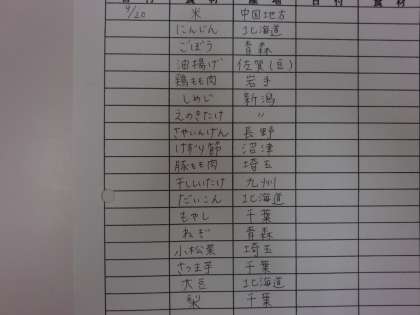 日付 食材 産地 日付 食材
9/20 米 中国地方
にんじん 北海道
ごぼう 青森
油揚げ 佐賀(豆)
鶏もも肉 岩手
しめじ 新潟
えのきたけ 〃
さやいんげん 長野
けずり節 沼津
豚もも肉 埼玉
干ししいたけ 九州
だいこん 北海道
もやし 千葉
ねぎ 青森
小松菜 埼玉
さつま芋 千葉
大豆 北海道
梨 千葉